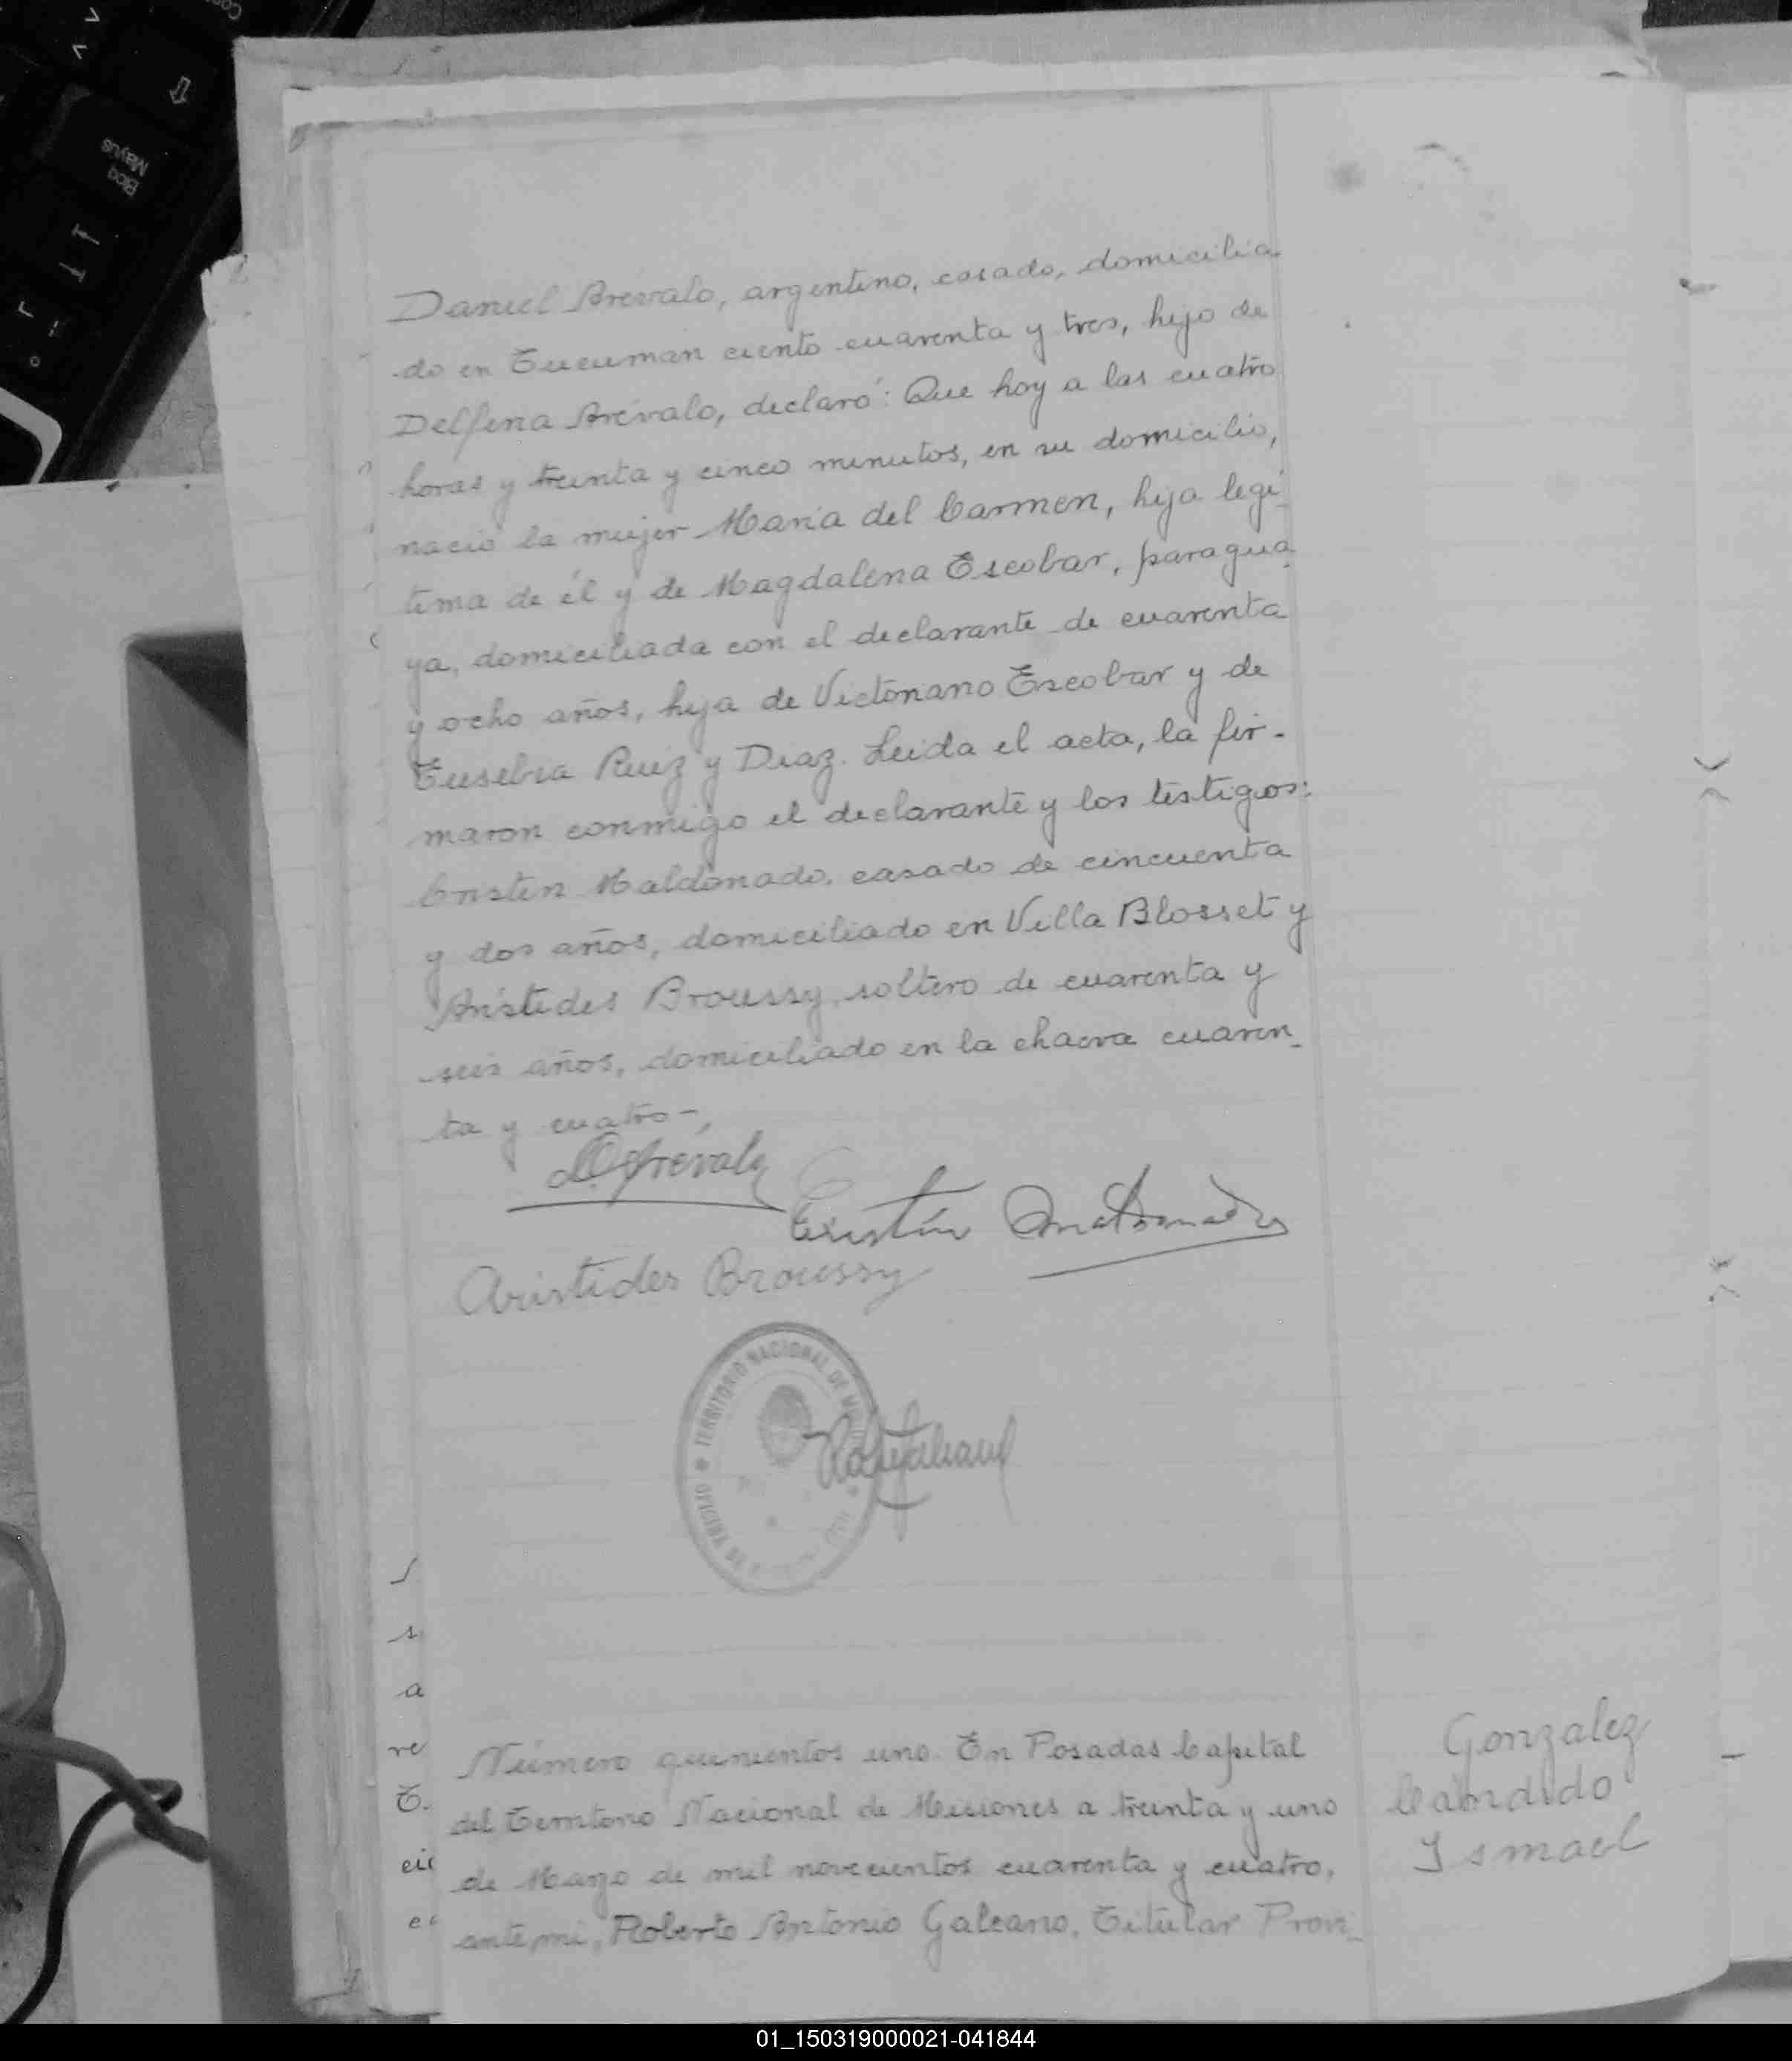 Daniel Arévalo, argentino, casado, domicilia
do en Tucuman ciento cuarenta y tres, hijo de
Delfina Arévalo, declaró: Que hoy a las cuatro
horas y treinta y cinco minutos, en su domicilio,
nació la mujer María del Carmen, hija legí-
tima de él y de Magdalena Escobar, paragua-
ya, domiciliada con el declarante de cuarenta
y ocho años, hija de Victoriano Escobar y de
Eusebia Ruiz y Diaz. Leida el acta, la fir-
maron conmigo el declarante y los testigos:
Cristin Maldonado, casado de cincuenta
y dos años, domiciliado en Villa Blosset y
Arístides Broussy, soltero de cuarenta y
seis años, domiciliado en la chacra cuaren-
ta y cuatro-,
D. Arévalo
Cristín Maldonado
Aristides Broussy
TERRITORIO NACIONAL DE
Número quinientos uno. En Posadas Capital
del Territorio Nacional de Misiones a treinta y uno
de Marzo de mil novecientos cuarenta y cuatro,
ante mi, Roberto Antonio Galeano, Titular Provi-
Gonzalez
Cándido
Ismael
Bloq
Mayús
01_150319000021-041844